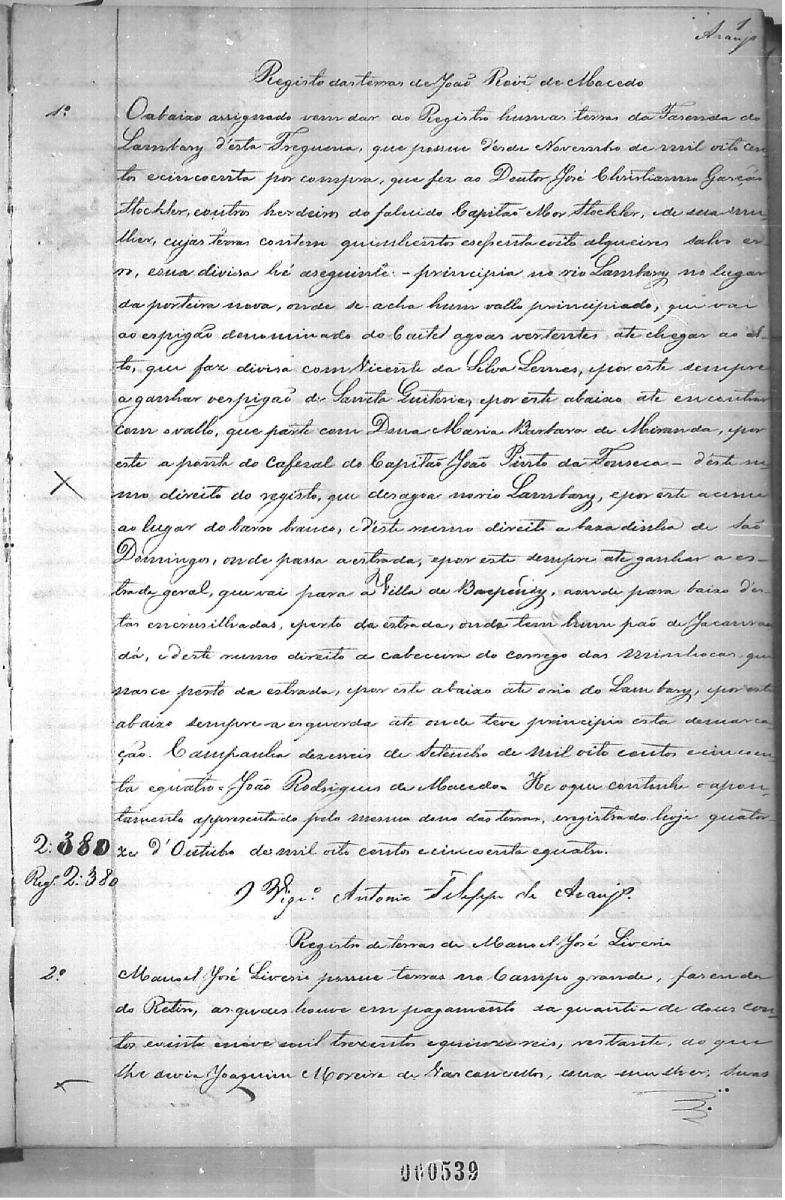 1
Araujo
Registo das terras de João Roiz de Macedo
1º
O abaixo assignado vem dar ao Registro humas terras da Fasenda do
Lambary d'esta Freguesia, que possue desde Novembro de mil oito cen-
tos e cincoenta por compra, que fez ao Doutor José Christianno Garção
Stockler, e outros herdeiros do falecido Capitão Mor Stockler, e de sua mu-
lher, cujas terras contem quinhentos e sessenta e oito alqueires salvo er-
ro, e sua divisa hé a seguinte:- principia no rio Lambary no lugar
da porteira nova, onde se-acha hum vallo principiado, que vai
ao espigão denominado do agoas vertentes até chegar ao al-
to, que faz divisa com Vicente da Silva Lemes, e por este sempre
a ganhar o espigão de Sancta Quiteria, e por este abaixo até encontrar
com o vallo, que parte com Dona Maria Barbara de Miranda, e por
este a ponta do cafesal do Capitão João Pinto da Fonseca - d'este ru-
mo direito do registo, que desagoa no rio Lambary, e por este acima
ao lugar do barro branco, e d'este rumo direito a baxadinha de São
Domingos, onde passa a estrada, e por este sempre até ganhar a es-
trada geral, que vai para a Villa de Baependy, aonde para baixo d'es-
tas encrusilhadas, e perto da estrada, onde tem hum pão de Jacaran-
dá, e d'este rumo direito a cabeceira do corrego das minhocas que
nasce perto da estrada, e por este abaixo até o rio do Lambary, e por este
abaixo sempre a esquerda até onde teve principio esta demarca-
ção. Campanha dezeseis de Setembro de mil oito centos e cincoen-
ta e quatro - João Rodrigues de Macedo - He o que continha o apon-
tamento appresentado pelo mesmo dono das terras, e registrado hoje quator-
2:380
ze d'Outubro de mil oito centos e cincoenta e quatro.
Reg. 2:380
O Vigr.º Antonio Felippe de Araujo.
Registro de terras de Manoel José Liverio
2º
Manoel José Liverio possue terras no Campo grande, fasenda
do Retiro, as quaes houve em pagamento da quantia de dous con-
tos e vinte e nove mil trezentos e quinze reis, restante, do que
lhe devia Joaquim Moreira de Vasconcellos, e sua mulher, suas
000539